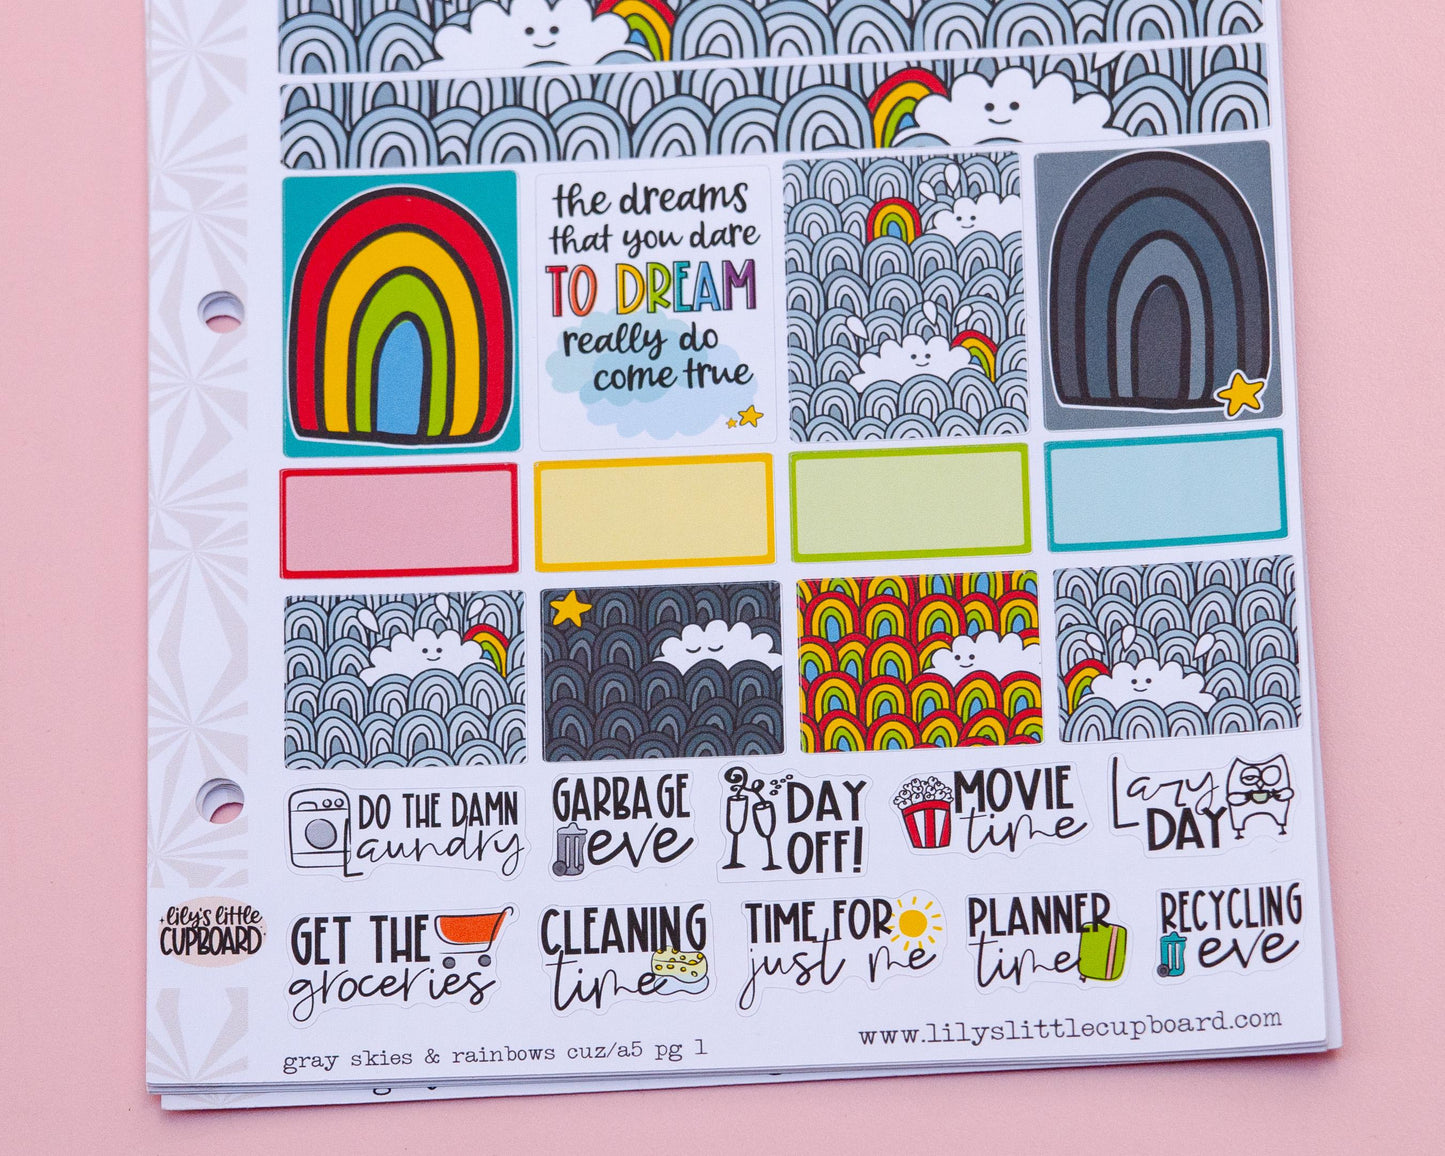 the dreams
that you dare
TO DREAM
really do
come true
DO THE DAMN
Laundry
GARBAGE
eve
DAY
OFF!
MOVIE
time
Lazy
DAY
GET THE
groceries
CLEANING
time
TIME FOR
just me
PLANNER
time
RECYCLING
eve
lily's little
CUPBOARD
www.lilyslittlecupboard.com
gray skies & rainbows cuz/a5 pg 1